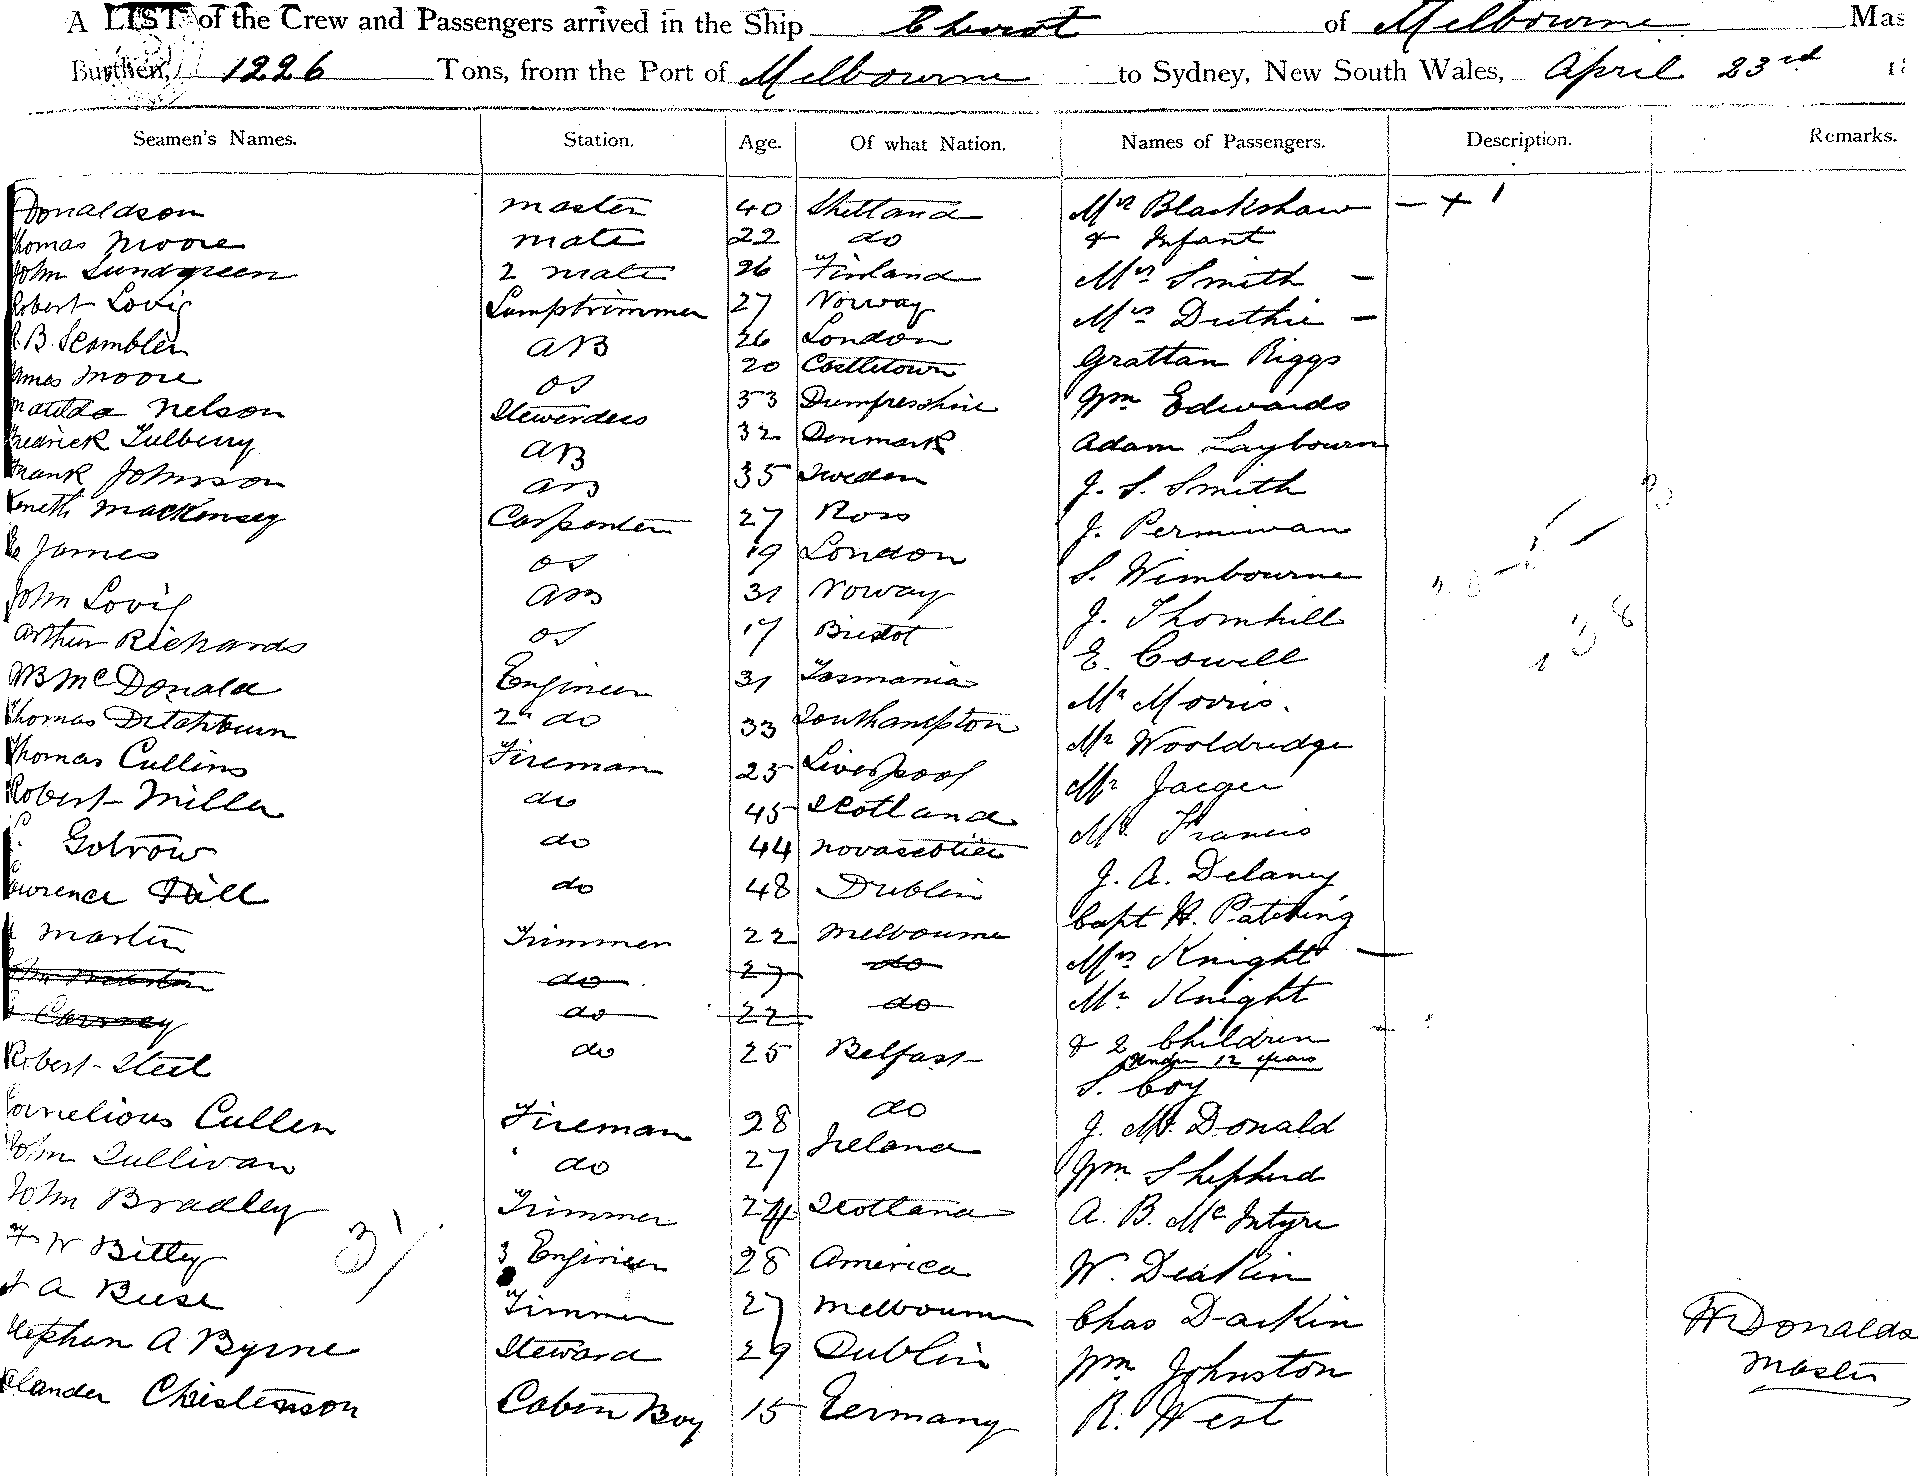 A LIST of the Crew and Passengers arrived in the Ship Cheviot of Melbourne Mas
Burthen, 1226 Tons, from the Port of Melbourne to Sydney, New South Wales, April 23rd 18
Seamen's Names. Station. Age. Of what Nation. Names of Passengers. Description. Remarks.
Donaldson master 40 Shetland Mrs Blackshaw - + 1
homas Moore mate 22 do & Infant
John Lundgreen 2 mate 26 Finland Mrs Smith -
Robert Lovig Lamptrimmer 27 Norway Mrs Duthie -
R. B. Scambler AB 26 London Grattan Riggs
ames Moore OS 20 Castletown Wm Edwards
matilda Nelson Stewerdess 33 Dumfresshire Adam Laybourn
Fredrick Tulberry AB 32 Denmark J. S. Smith
Frank Johnson AB 35 Sweden J. Permiwan
Keneth Mackensey Carpenter 27 Ross S. Wimbourne
James OS 19 London J. Thornhill
John Lovig AB 31 Noway E. Cowell
Arthur Richards OS 17 Bristol Mr Morris.
WB McDonald Engineer 31 Tasmania Mr Wooldridge
Thomas Ditchburn 2n do 33 Southampton Mr Jaeger
Thomas Cullins Fireman 25 Liverpool Mr Francis
Robert Miller do 45 Scotland J. A. Delaney
Gotrow do 44 novascotia Capt H. Patching
awrence Hall do 48 Dublin Mrs Knight -
Martin Trimmer 22 Melbourne Mr Knight
do 27 do & 2 Children
Conney do 22 do under 12 years
Robert Steel do 25 Belfast S. Coy
Cornelious Cullen Fireman 28 do J. Mc Donald
John Sullivan do 27 Ireland Wm Shepherd
John Bradley Trimmer 24 Scotland A. B. McIntyre
F W Bitley 3 Engineer 28 America W. Deakin
31
A Buse Timmer 27 Melbourne Chas Daikin
Stephan A Byrne Steward 29 Dublin Wm Johnston
lander Christenson Cabin Boy 15 Germany R. West
H Donalds
Master